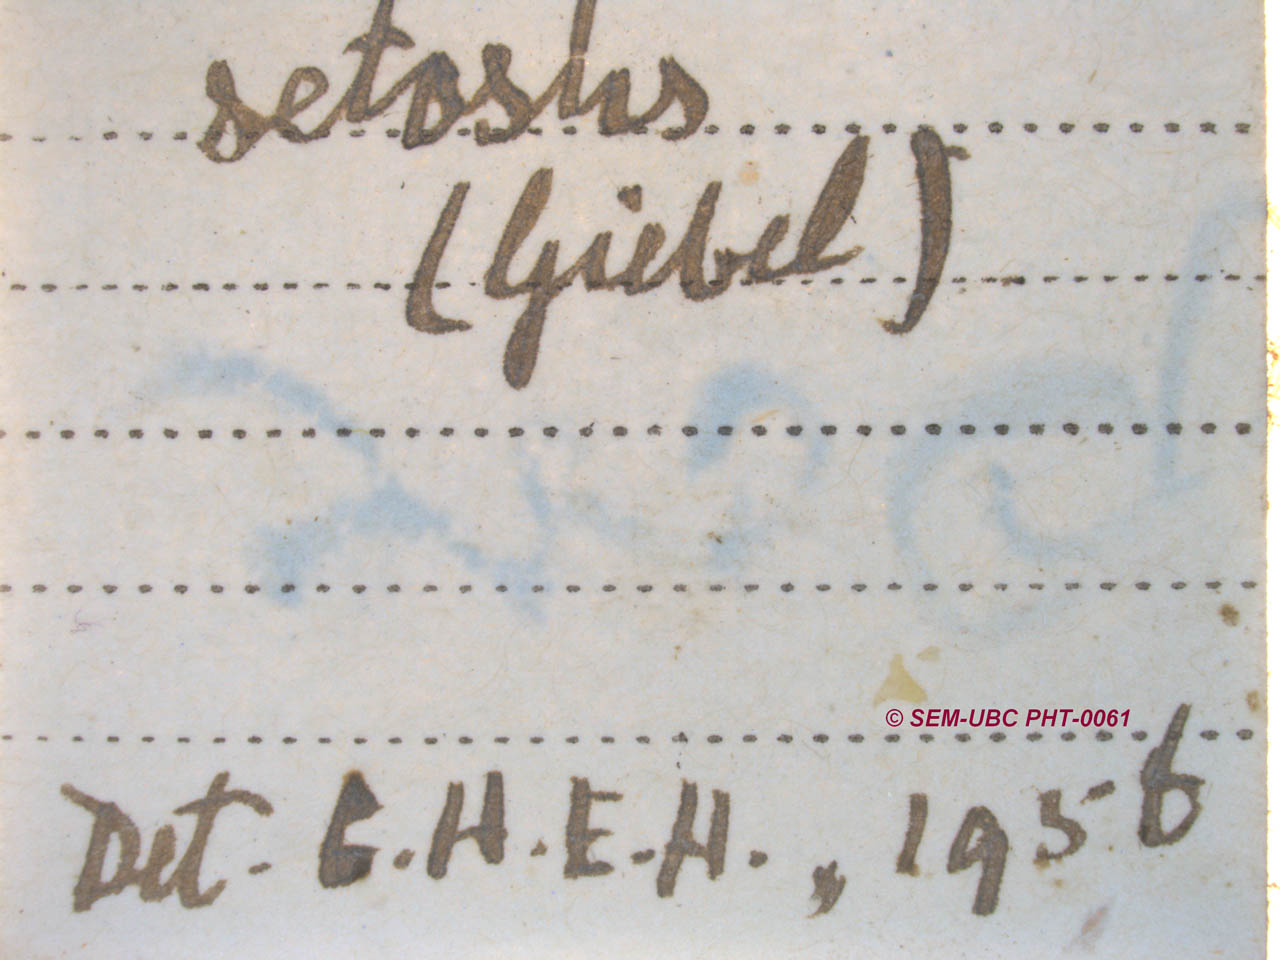 setosus
(Giebel)
© SEM-UBC PHT-0061
Det. G.H.E.H., 1956